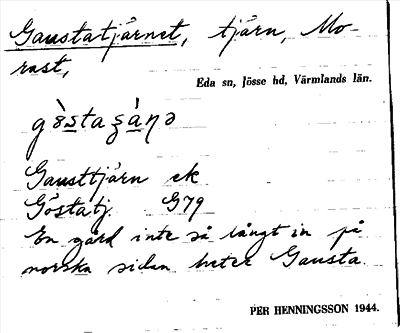 Gaustatjärnet, tjärn, Mo-
rast,
Eda sn, Jösse hd, Värmlands län.
gö̀staʂä́ŋə
Gausttjärn ek
Göstatj. G79
En gård inte så långt in på
norska sidan heter Gausta.
PER HENNINGSSON 1944.